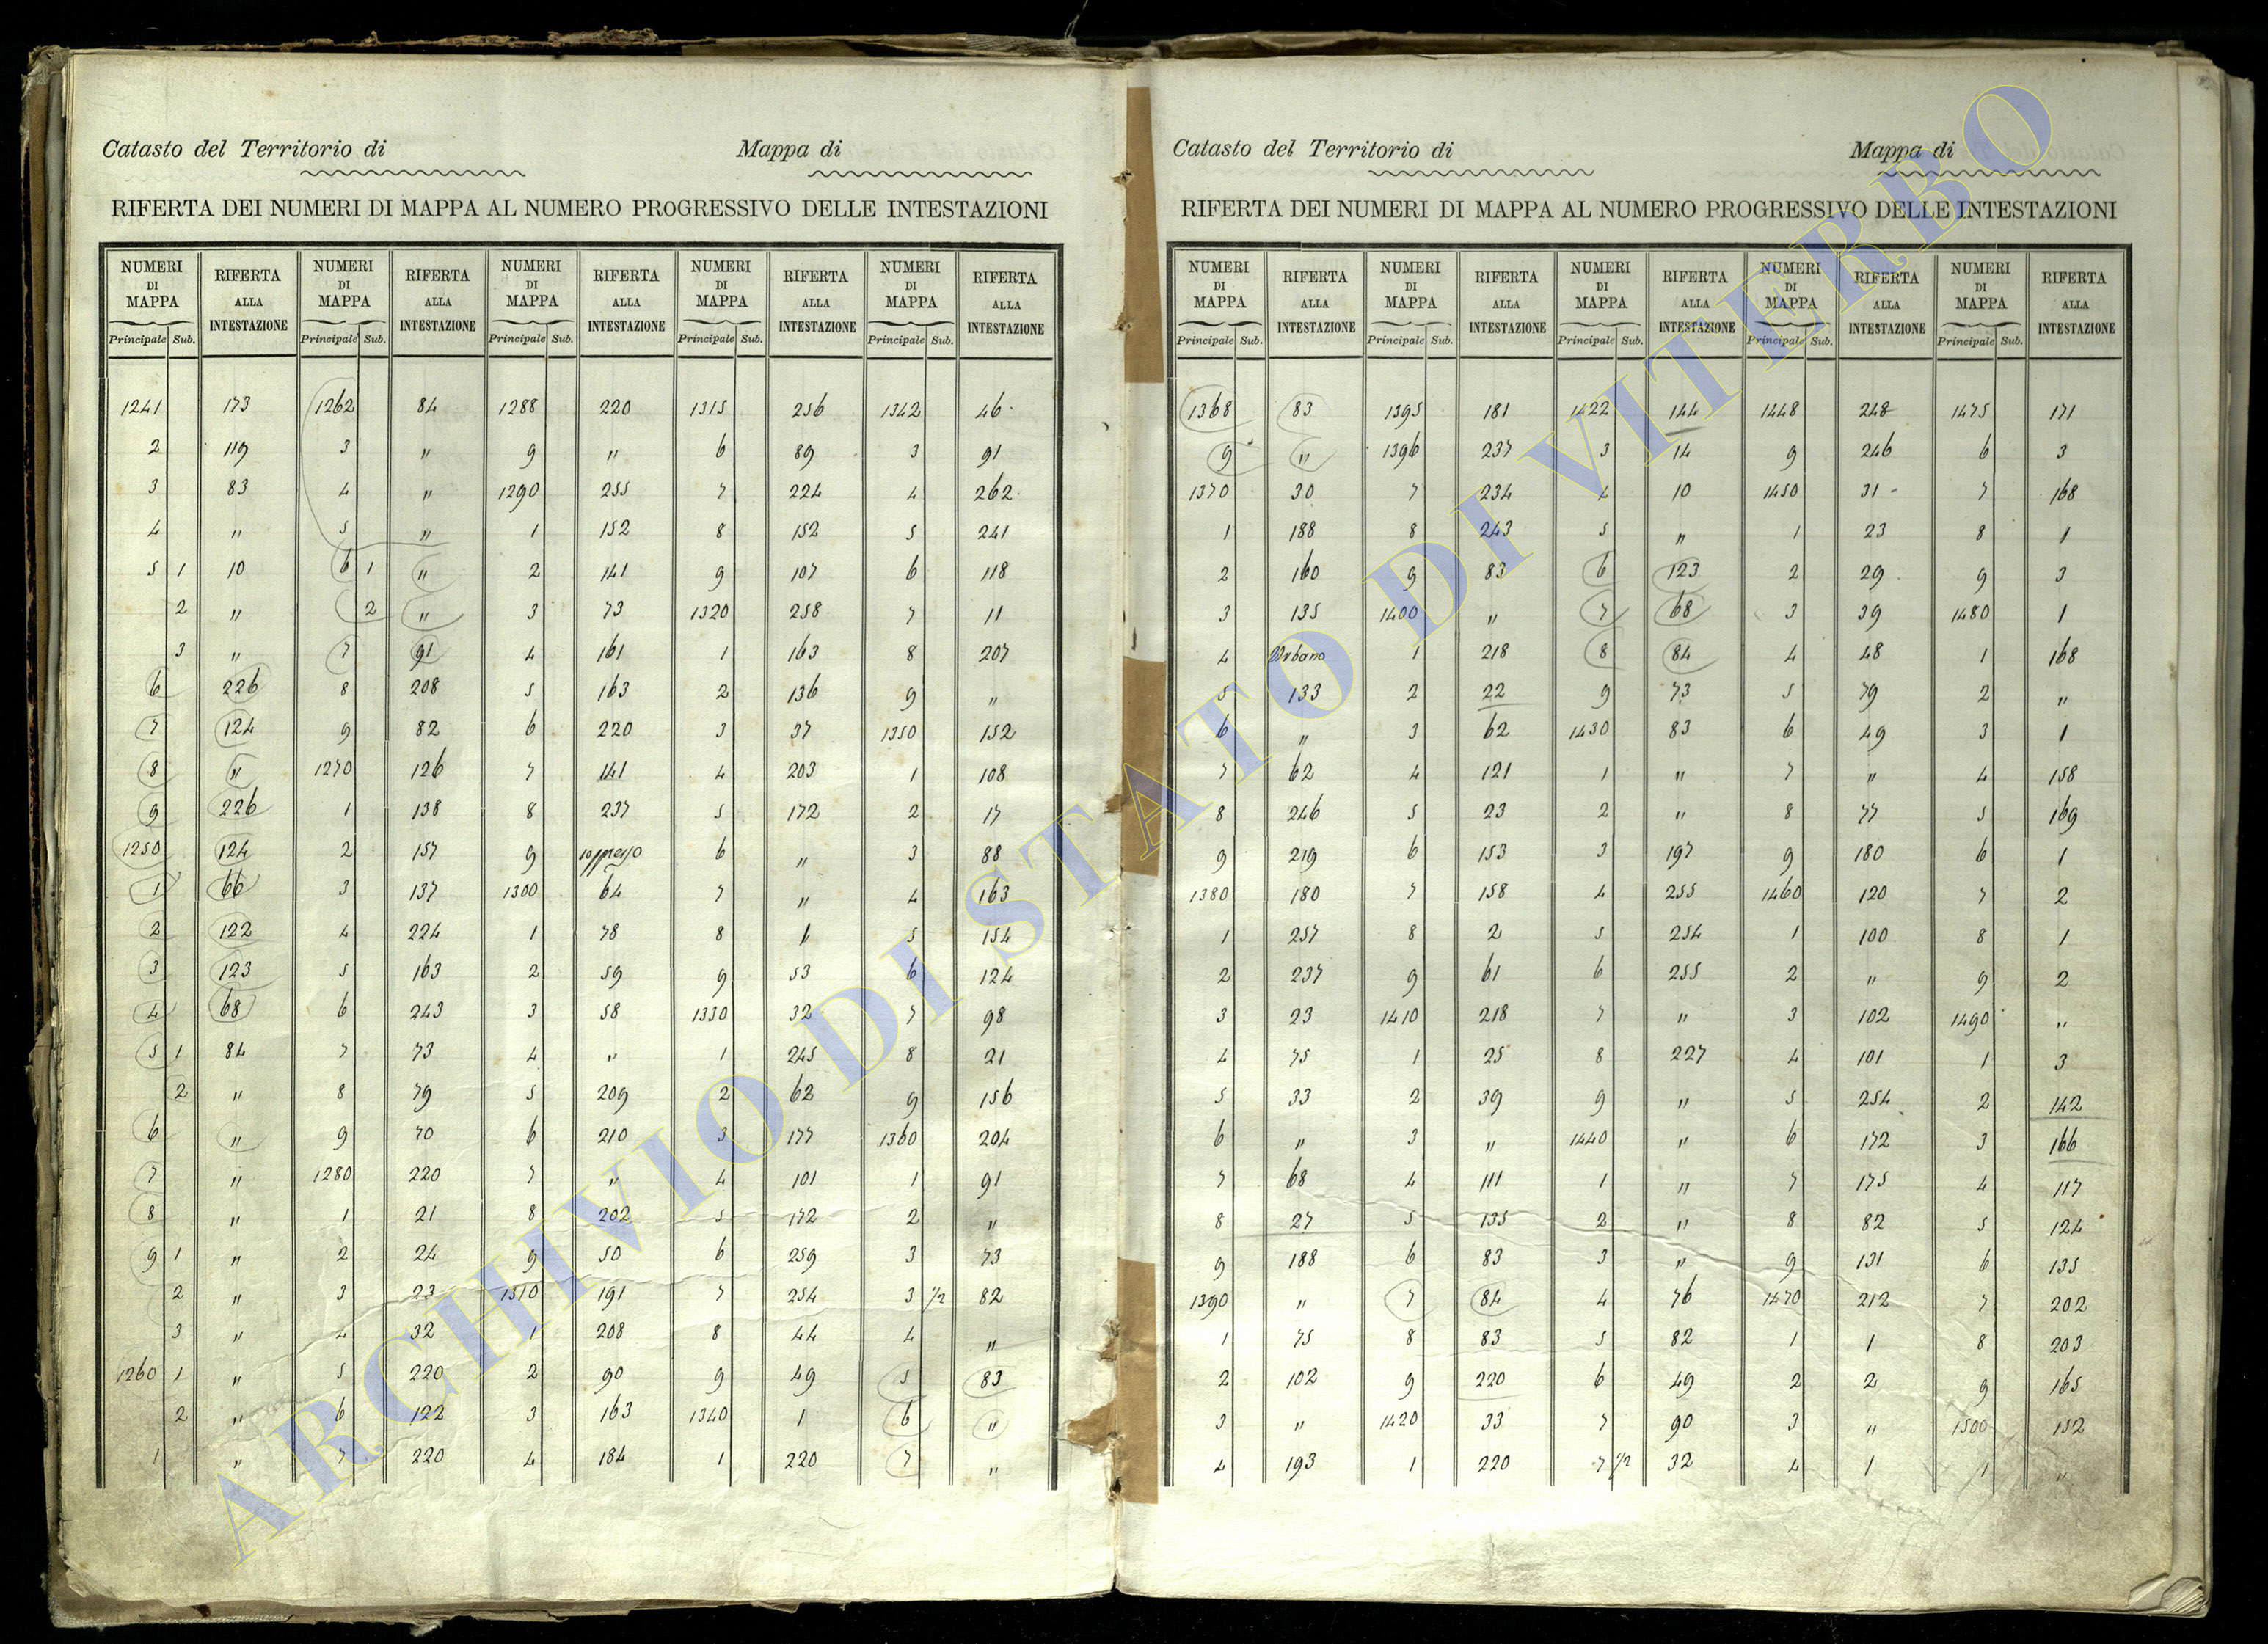 Catasto del Territorio di Mappa di
RIFERTA DEI NUMERI DI MAPPA AL NUMERO PROGRESSIVO DELLE INTESTAZIONI
NUMERI DI MAPPA RIFERTA ALLA INTESTAZIONE NUMERI DI MAPPA RIFERTA ALLA INTESTAZIONE NUMERI DI MAPPA RIFERTA ALLA INTESTAZIONE NUMERI DI MAPPA RIFERTA ALLA INTESTAZIONE NUMERI DI MAPPA RIFERTA ALLA INTESTAZIONE
Principale Sub. Principale Sub. Principale Sub. Principale Sub. Principale Sub.
1241 173 1262 84 1288 220 1315 256 1342 46
2 119 3 " 9 " 6 89 3 91
3 83 4 " 1290 255 7 224 4 262
4 " 5 " 1 152 8 152 5 241
5 1 10 6 1 " 2 141 9 107 6 118
2 " 2 " 3 73 1320 258 7 11
3 " 7 91 4 161 1 163 8 207
6 226 8 208 5 163 2 136 9 "
7 124 9 82 6 220 3 37 1350 152
8 " 1270 126 7 141 4 203 1 108
9 226 1 138 8 237 5 172 2 17
1250 124 2 157 9 soppresso 6 " 3 88
1 66 3 137 1300 64 7 " 4 163
2 122 4 224 1 78 8 1 5 154
3 123 5 163 2 59 9 53 6 124
4 68 6 243 3 58 1330 32 7 98
5 1 84 7 73 4 " 1 245 8 21
2 " 8 79 5 209 2 62 9 156
6 " 9 70 6 210 3 177 1360 204
7 " 1280 220 7 " 4 101 1 91
8 " 1 21 8 202 5 172 2 "
9 1 " 2 24 9 50 6 259 3 73
2 " 3 23 1310 191 7 254 3 1/2 82
3 " 4 32 1 208 8 44 4 "
1260 1 " 5 220 2 90 9 49 5 83
2 " 6 122 3 163 1340 1 6 "
1 " 7 220 4 184 1 220 7 "
Catasto del Territorio di Mappa di
RIFERTA DEI NUMERI DI MAPPA AL NUMERO PROGRESSIVO DELLE INTESTAZIONI
NUMERI DI MAPPA RIFERTA ALLA INTESTAZIONE NUMERI DI MAPPA RIFERTA ALLA INTESTAZIONE NUMERI DI MAPPA RIFERTA ALLA INTESTAZIONE NUMERI DI MAPPA RIFERTA ALLA INTESTAZIONE NUMERI DI MAPPA RIFERTA ALLA INTESTAZIONE
Principale Sub. Principale Sub. Principale Sub. Principale Sub. Principale Sub.
1368 83 1395 181 1422 144 1448 248 1475 171
9 " 1396 237 3 14 9 246 6 3
1370 30 7 234 4 10 1450 31 7 168
1 188 8 243 5 " 1 23 8 1
2 160 9 83 6 123 2 29 9 3
3 135 1400 " 7 68 3 39 1480 1
4 Urbano 1 218 8 84 4 48 1 168
5 133 2 22 9 73 5 79 2 "
6 " 3 62 1430 83 6 49 3 1
7 62 4 121 1 " 7 " 4 158
8 246 5 23 2 " 8 77 5 169
9 219 6 153 3 197 9 180 6 1
1380 180 7 158 4 255 1460 120 7 2
1 257 8 2 5 254 1 100 8 1
2 237 9 61 6 255 2 " 9 2
3 23 1410 218 7 " 3 102 1490 "
4 75 1 25 8 227 4 101 1 3
5 33 2 39 9 " 5 254 2 142
6 " 3 " 1440 " 6 172 3 166
7 68 4 111 1 " 7 175 4 117
8 27 5 135 2 " 8 82 5 124
9 188 6 83 3 " 9 131 6 135
1390 " 7 84 4 76 1470 212 7 202
1 75 8 83 5 82 1 1 8 203
2 102 9 220 6 49 2 2 9 165
3 " 1420 33 7 90 3 " 1500 152
4 193 1 220 7 1/2 32 4 1 1 "
ARCHIVIO DI STATO DI VITERBO